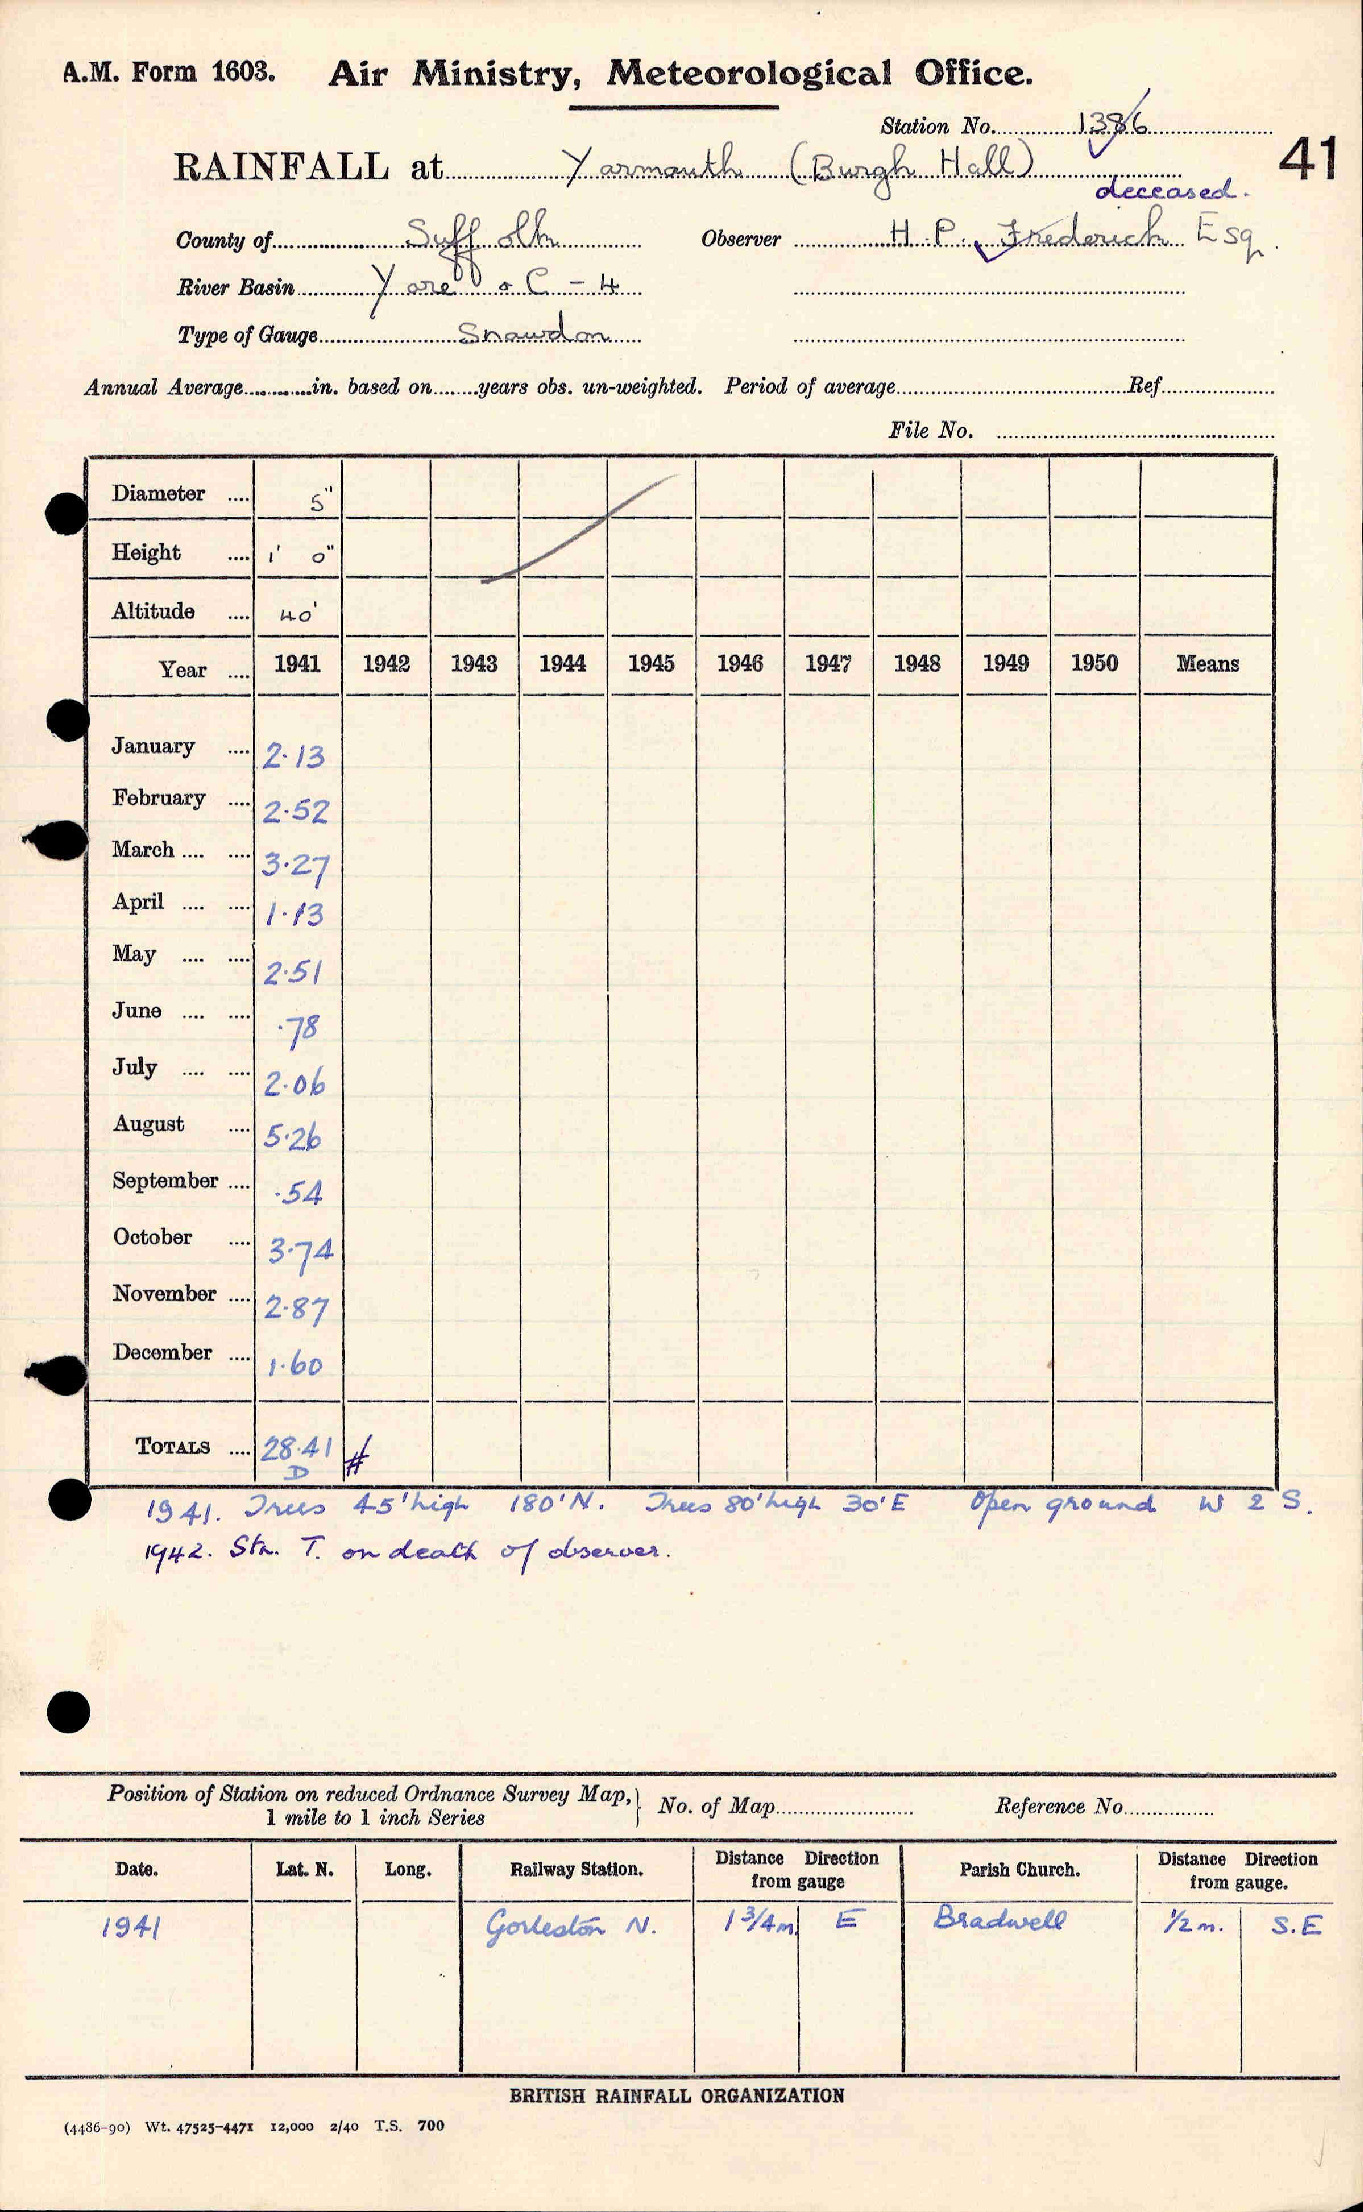 A.M. Form 1603. Air Ministry, Meteorological Office.
Station No. 1386
41
RAINFALL at Yarmouth (Burgh Hall)
deceased.
County of Suffolk Observer H. P. Frederick Esq.
River Basin Yare & C - 4
Type of Gauge Snowdon
Annual Average in. based on years obs. un-weighted. Period of average Ref.
File No.
Diameter .... 5"
Height .... 1' 0"
Altitude .... 40'
Year .... 1941 1942 1943 1944 1945 1946 1947 1948 1949 1950 Means
January .... 2.13
February .... 2.52
March .... .... 3.27
April .... .... 1.13
May .... .... 2.51
June .... .... .78
July .... .... 2.06
August .... 5.26
September .... .54
October .... 3.74
November .... 2.87
December .... 1.60
TOTALS .... 28.41 #
D
1941. Trees 45' high 180' N. Trees 80' high 30' E Open ground W & S.
1942. Stn. T. on death of observer.
Position of Station on reduced Ordnance Survey Map, } No. of Map Reference No.
1 mile to 1 inch Series
Date. Lat. N. Long. Railway Station. Distance Direction from gauge Parish Church. Distance Direction from gauge.
1941 Gorleston N. 1 3/4 m. E Bradwell 1/2 m. S.E
BRITISH RAINFALL ORGANIZATION
(4486-90) Wt. 47525-4471 12,000 2/40 T.S. 700